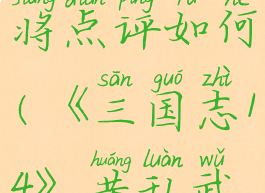 jiāng diǎn píng rú hé
将点评如何
sān guó zhì
(《三国志/
huáng luàn wǔ
4》黄乱武